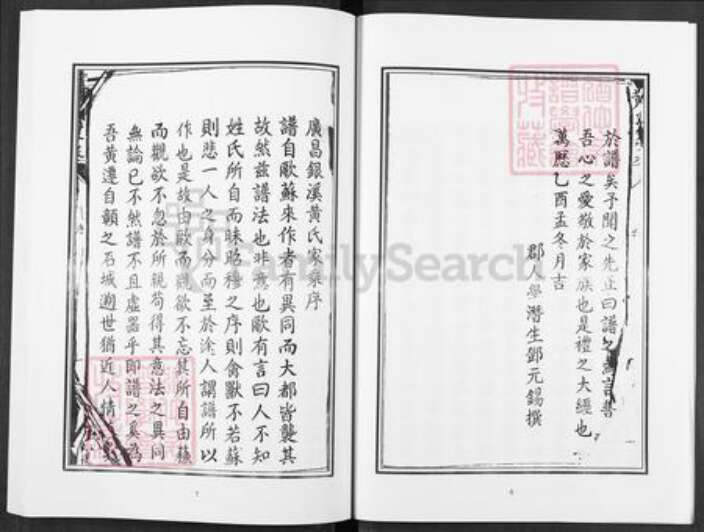 於譜矣予聞之先正曰譜之為言普
吾心之愛敬於家族也是禮之大經也
萬曆乙酉孟冬月吉
郡學潛生鄧元錫撰
6
廣昌銀溪黃氏家乘序
譜自歐蘇來作者有異同而大都皆襲其
故然茲譜法也非意也歐有言曰人不知
姓氏所自而昧昭穆之序則禽獸不若蘇
則悲一人之身分而至於途人謂譜所以
作也是故由歐而觀欲不忘其所自由蘇
而觀欲不忽於所親苟得其意法之異同
無論已不然譜不且虛器乎即譜之奚為
吾黃遷自贛之石城邇世猶近人情
7
FamilySearch